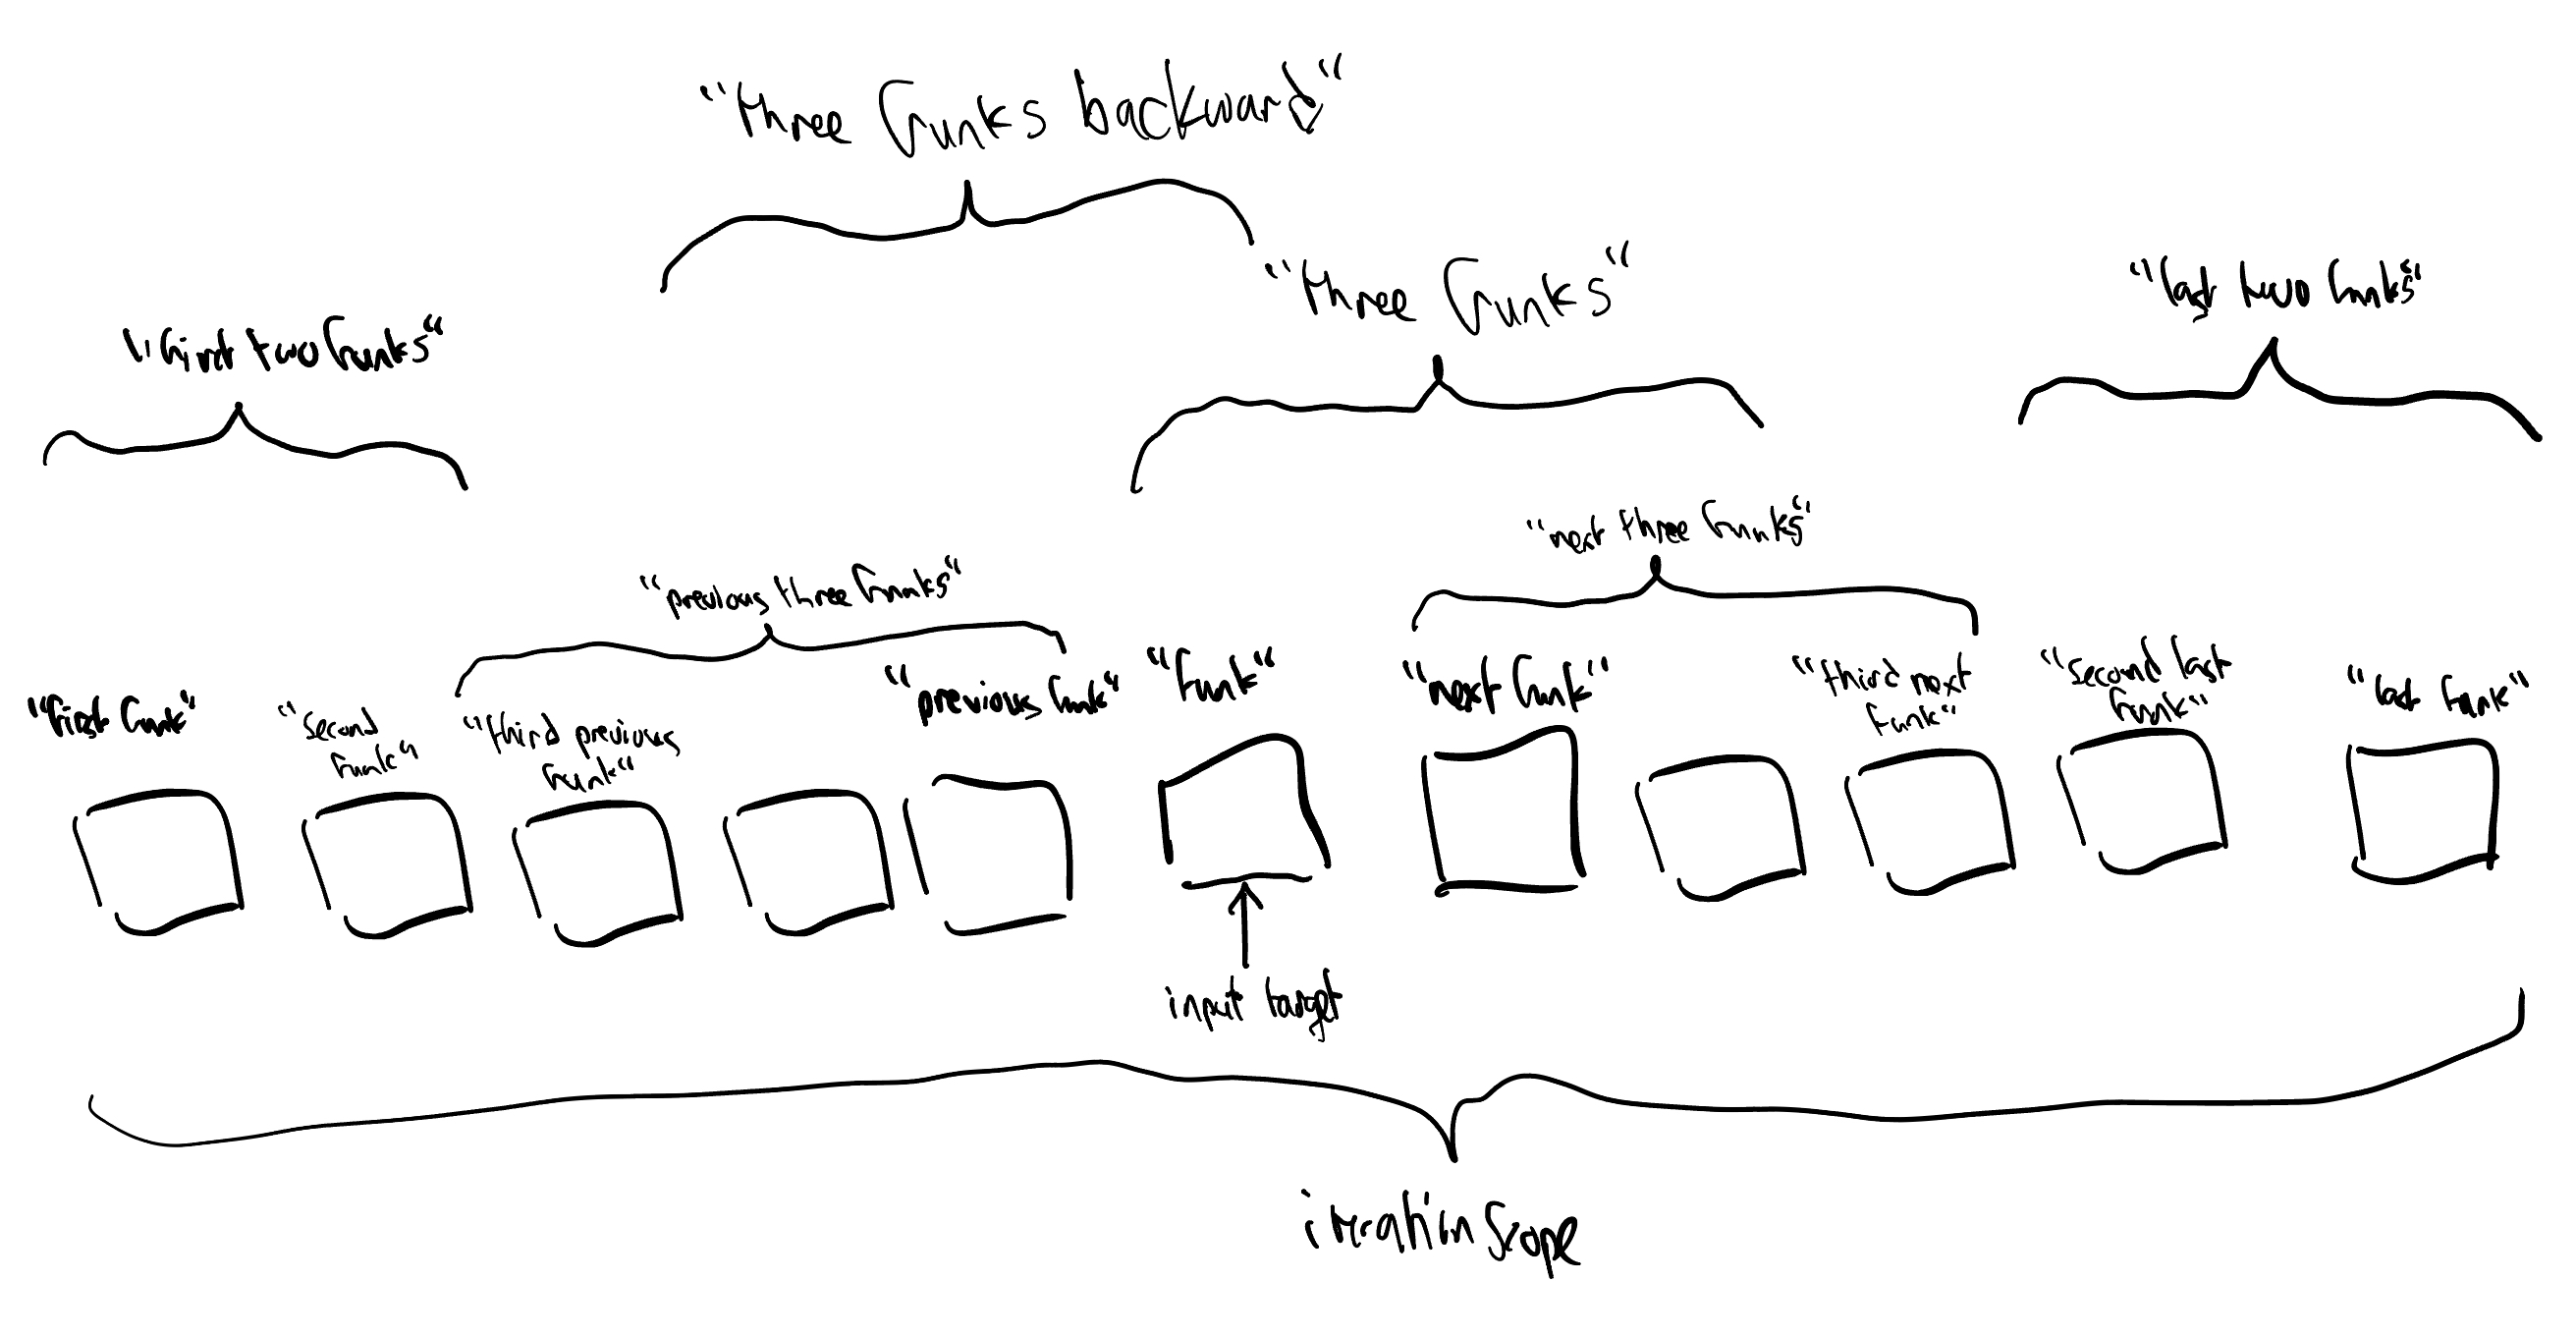 "three funks backward"
"three funks"
"last two funks"
"first two funks"
"next three funks"
"previous three funks"
"first funk"
"second
funk"
"third previous
funk"
"previous funk"
"funk"
"next funk"
"third next
funk"
"second last
funk"
"last funk"
input target
iteration scope